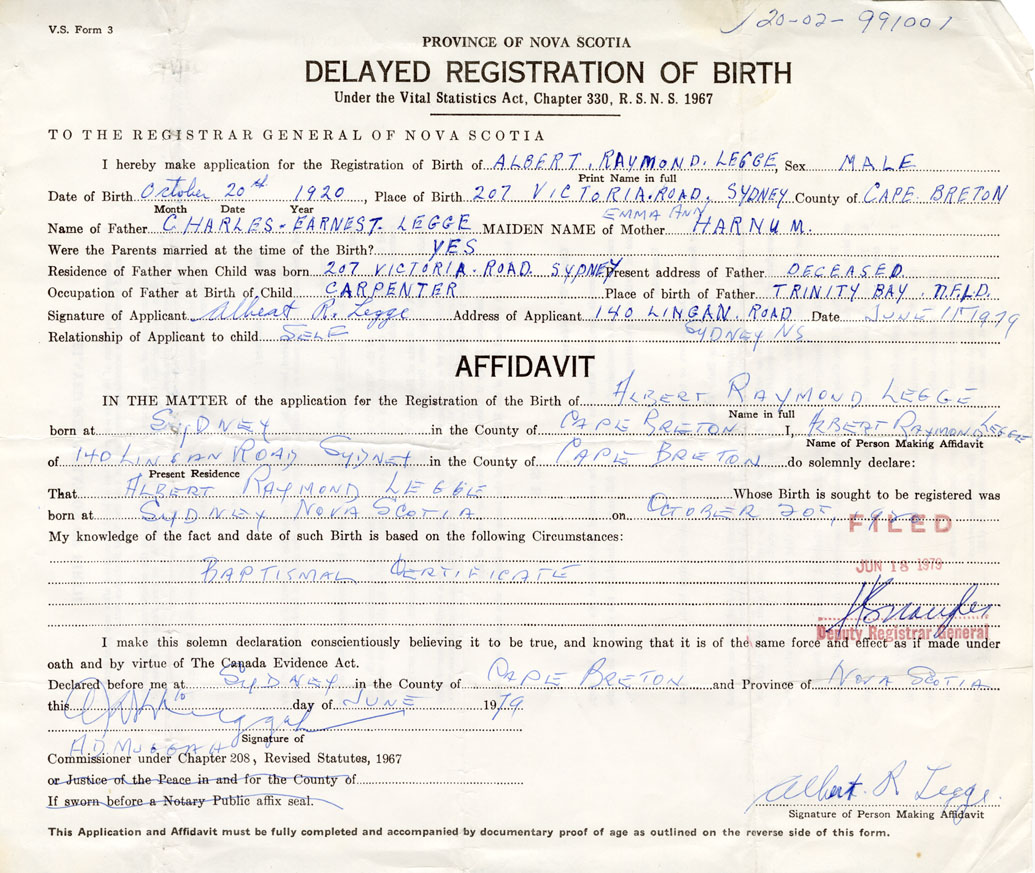 V.S. Form 3
20-02-991001
PROVINCE OF NOVA SCOTIA
DELAYED REGISTRATION OF BIRTH
Under the Vital Statistics Act, Chapter 330, R. S. N. S. 1967
TO THE REGISTRAR GENERAL OF NOVA SCOTIA
I hereby make application for the Registration of Birth of ALBERT. RAYMOND. LEGGE, Sex MALE
Print Name in full
Date of Birth October 20th 1920, Place of Birth 207 VICTORIA. ROAD. SYDNEY County of CAPE BRETON
Month Date Year
EMMA ANN
Name of Father CHARLES. EARNEST. LEGGE MAIDEN NAME of Mother HARNUM.
Were the Parents married at the time of the Birth? YES
Residence of Father when Child was born 207 VICTORIA. ROAD. SYDNEY Present address of Father DECEASED.
Occupation of Father at Birth of Child CARPENTER Place of birth of Father TRINITY BAY. NFLD.
Signature of Applicant Albert R. Legge Address of Applicant 140 LINGAN. ROAD Date JUNE 11th 1979
Relationship of Applicant to child SELF SYDNEY NS
AFFIDAVIT
IN THE MATTER of the application for the Registration of the Birth of ALBERT RAYMOND LEGGE
Name in full
born at SYDNEY in the County of CAPE BRETON I, ALBERT RAYMOND LEGGE
Name of Person Making Affidavit
of 140 LINGAN ROAD SYDNEY in the County of CAPE BRETON do solemnly declare:
Present Residence
That ALBERT RAYMOND LEGGE Whose Birth is sought to be registered was
born at SYDNEY NOVA SCOTIA on OCTOBER 20th, 1920
FILED
My knowledge of the fact and date of such Birth is based on the following Circumstances:
JUN 18 1979
BAPTISMAL CERTIFICATE
Deputy Registrar General
I make this solemn declaration conscientiously believing it to be true, and knowing that it is of the same force and effect as if made under
oath and by virtue of The Canada Evidence Act.
Declared before me at SYDNEY in the County of CAPE BRETON and Province of NOVA SCOTIA
this day of JUNE 1979
Signature of
A.D. MUGGAH
Commissioner under Chapter 208, Revised Statutes, 1967
or Justice of the Peace in and for the County of
If sworn before a Notary Public affix seal.
Albert R Legge.
Signature of Person Making Affidavit
This Application and Affidavit must be fully completed and accompanied by documentary proof of age as outlined on the reverse side of this form.